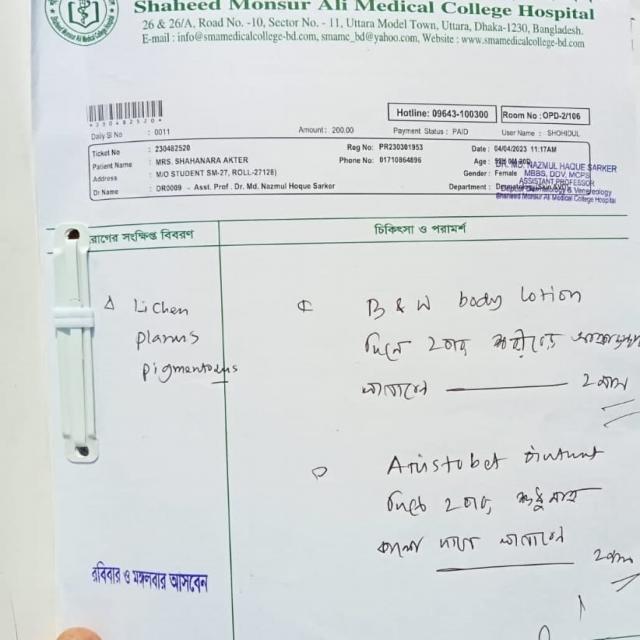 Shaheed Monsur Ali Medical College Hospital
26 & 26/A, Road No. -10, Sector No. - 11, Uttara Model Town, Uttara, Dhaka-1230, Bangladesh.
E-mail : info@smamedicalcollege-bd.com, smamc_bd@yahoo.com, Website : www.smamedicalcollege-bd.com
Hotline: 09643-100300 Room No :OPD-2/106
*230482520*
Daily Sl No : 0011 Amount: 200.00 Payment Status : PAID User Name : SHOHIDUL
Ticket No : 230482520 Reg No: PR230301953 Date : 04/04/2023 11:17AM
Patient Name : MRS. SHAHANARA AKTER Phone No: 01710864896 Age :
Address : M/O STUDENT SM-27, ROLL-27128) Gender : Female
Dr Name : DR0009 - Asst. Prof. Dr. Md. Nazmul Hoque Sarker Department :
DR. MD. NAZMUL HAQUE SARKER
MBBS, DDV, MCPS
ASSISTANT PROFESSOR
Shaheed Monsur Ali Medical College Hospital
রোগের সংক্ষিপ্ত বিবরণ চিকিৎসা ও পরামর্শ
Δ Lichen
planus
pigmentosus
B & W body lotion
দিনে ২বার শরীরে
লাগাবেন ২মাস
Aristobet ointment
দিনে ২বার শুধু মাত্র
কালো দাগে লাগাবেন
২মাস
রবিবার ও মঙ্গলবার আসবেন